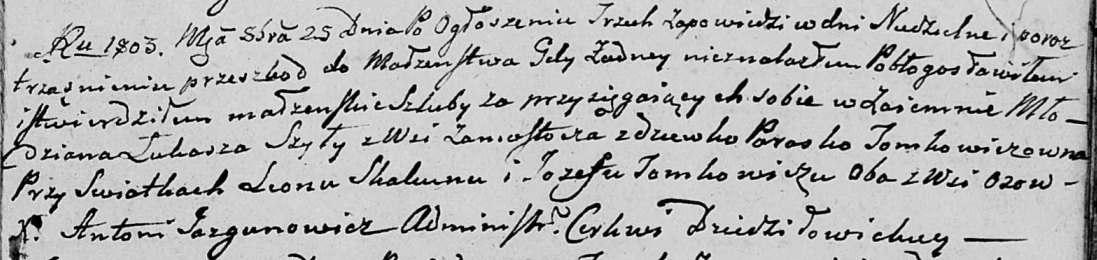 Ru 1803. Mća 8bra 25 Dnia Po Ogłoszeniu Trzech Zapowiedzi w dni Niedzielne i poroz
trząsnieniu przeszkod do Małżeństwa Gdy Żadney nieznalazłem Pobłogosławiłem
i stwierdziłem małżenskie Szluby za przysięgaiących sobie w Zaiemnie Mło-
dziana Łukasza Szyły z Wsi Zamostocza z dziewko Parasko Tomkowiczowna
Przy Swiatkach Leonu Skakunu i Jozefu Tomkowiczu Oba z Wsi Ozow-
X. Antoni Jazgunowicz Administr. Cerkwi Dziedziłowickiey